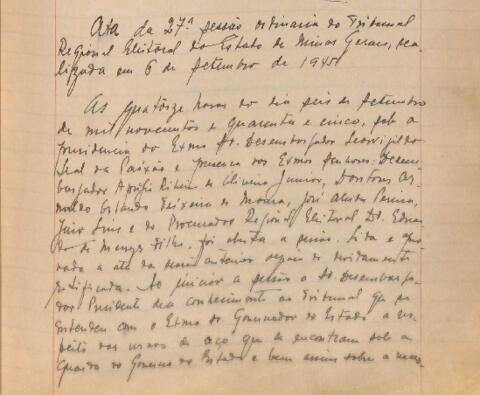 Ata da 27ª sessão ordinaria do Tribunal
Regional Eleitoral do Estado de Minas Geraes, rea-
lizada em 6 de setembro de 1945
As quatorze horas do dia seis de setembro
de mil novecentos e quarenta e cinco, sob a
presidencia do Exmo Sr. Desembargador Leovigildo
Leal da Paixão e presença dos Exmos Senhores: Desem-
bargador Aprigio Ribeiro de Oliveira Junior, Doutores Ar-
naldo Teixeira de Moura, José Pereira,
e do Procurador Regional Eleitoral Dr. Edgar-
de Menezes Filho, foi aberta a sessão. Lida e apro-
vada a ata da sessão anterior depois de devidamente
retificada. Ao iniciar a sessão o Sr. Desembarga-
dor Presidente deu conhecimento ao Tribunal que se
entendeu com o Exmo Sr. Governador do Estado a res-
peito das urnas de aço que se encontram sob a
guarda do Governo do Estado e bem assim sobre a